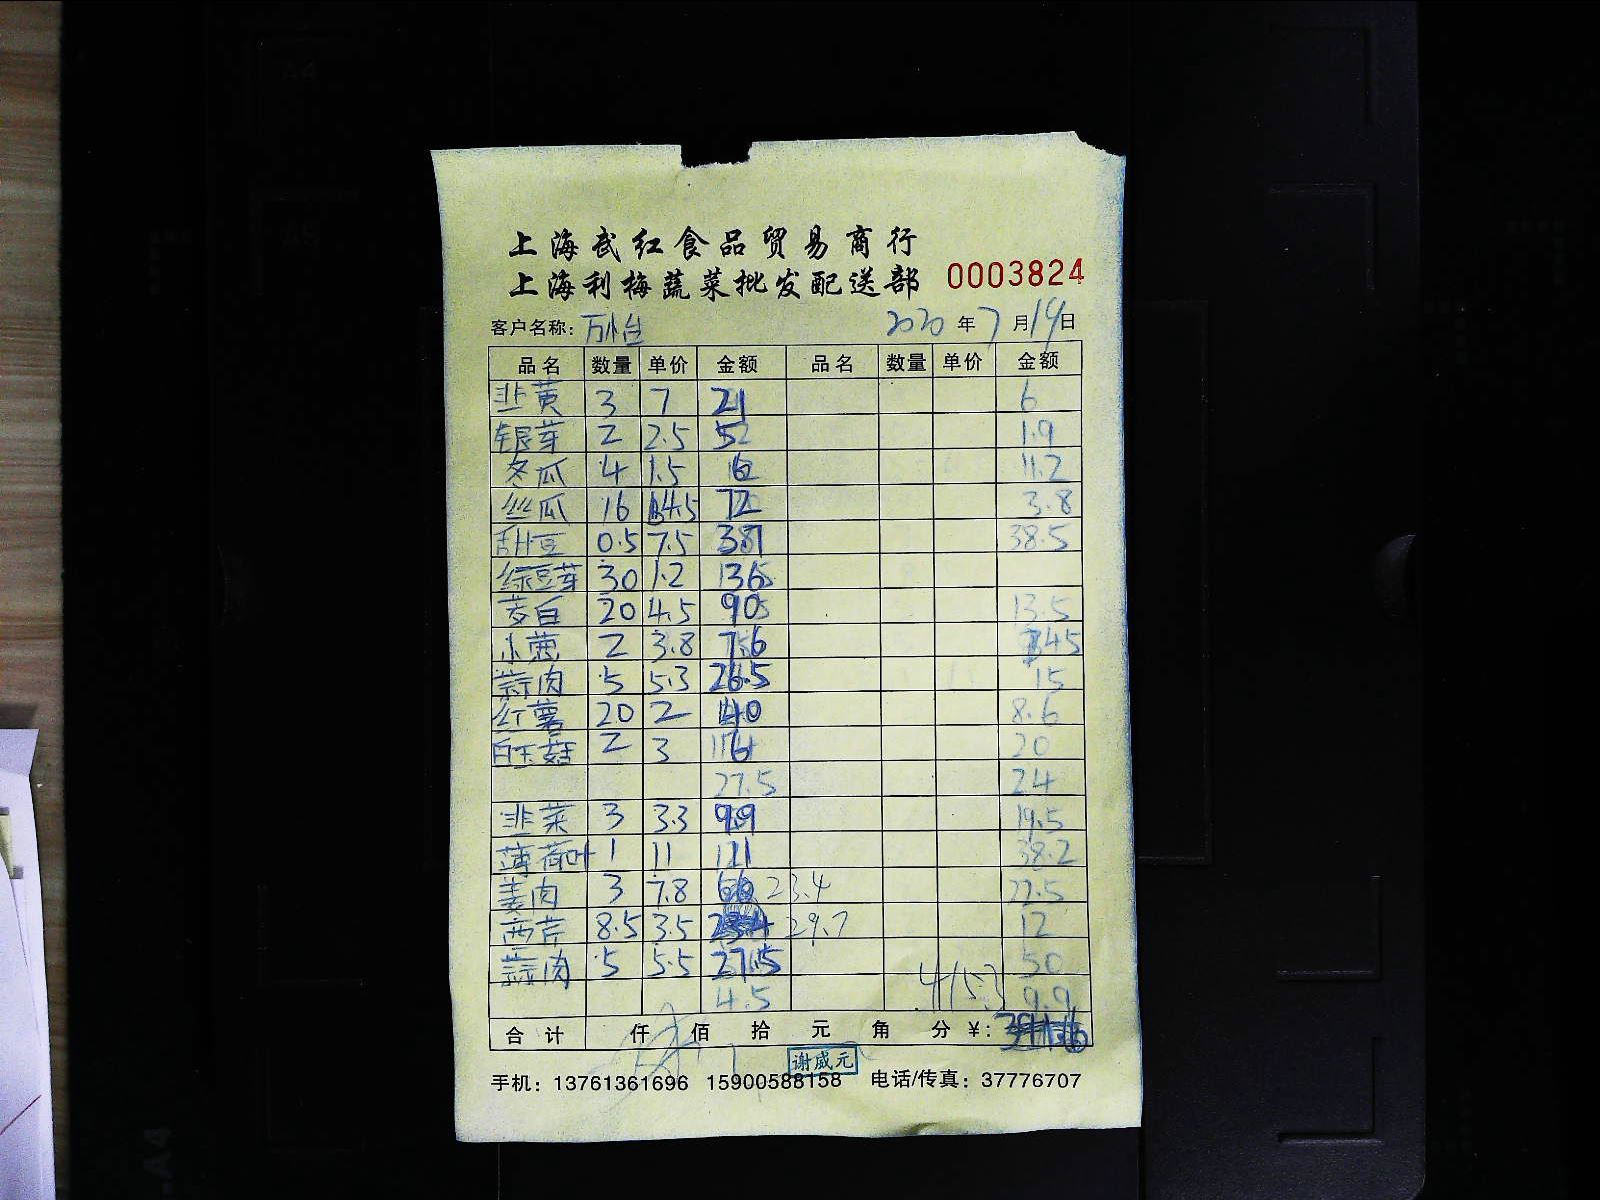 上海武红食品贸易商行
上海利梅蔬菜批发配送部 0003824
客户名称：万怡 2020 年 7 月 19 日
品名 数量 单价 金额 品名 数量 单价 金额
韭黄 3 7 21 6
银芽 2 2.5 5 1.9
冬瓜 4 1.5 6 11.2
丝瓜 16 4.5 72 3.8
甜豆 0.5 7.5 38.5
绿豆芽 30 1.2 36
茭白 20 4.5 90 13.5
小葱 2 3.8 7.6 45
蒜肉 5 5.3 26.5 15
红薯 20 2 40 8.6
白玉菇 2 3 6 20
27.5 24
韭菜 3 3.3 9.9 19.5
薄荷叶 1 11 11 38.2
姜肉 3 7.8 23.4 22.5
西芹 8.5 3.5 29.7 12
蒜肉 5 5.5 27.5 50
4.5 415.3 9.9
合计 仟 佰 拾 元 角 分 ¥:
谢威元
手机：13761361696 15900588158 电话/传真：37776707